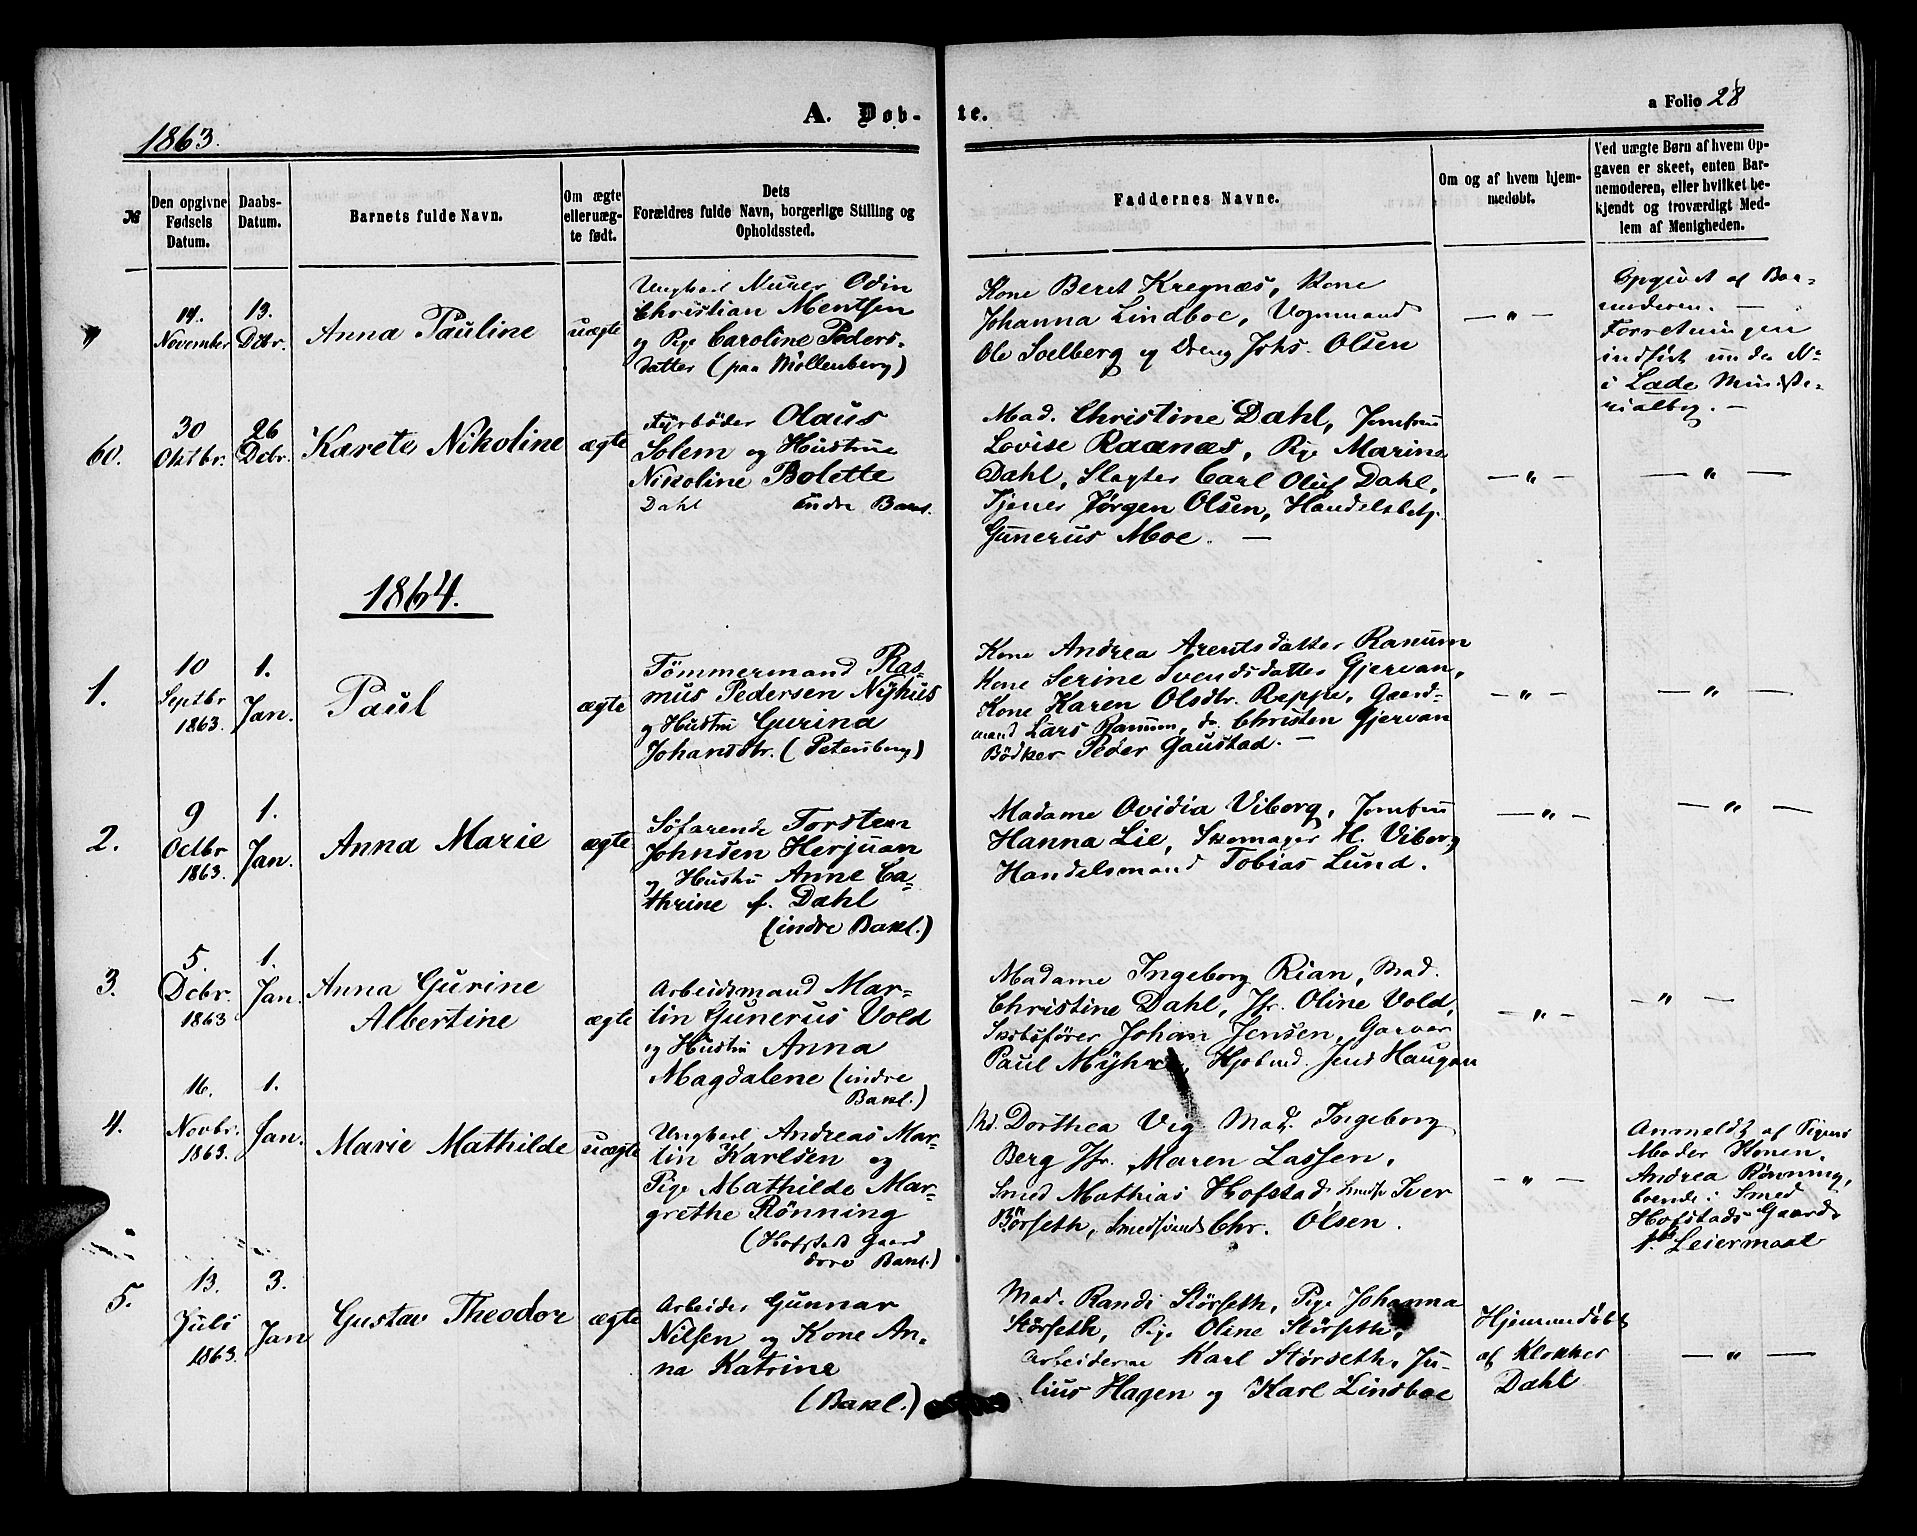 A. Døb-
te.
a Folio 28
1863.
№
Den opgivne
Fødsels
Datum.
Daabs-
Datum.
Barnets fulde Navn.
Om ægte
eller uæg-
te født.
Dets
Forældres fulde Navn, borgerlige Stilling og
Opholdssted.
Faddernes Navne.
Om og af hvem hjem-
medøbt.
Ved uægte Børn af hvem Op-
gaven er skeet, enten Bar-
nemoderen, eller hvilket be-
kjendt og troværdigt Med-
lem af Menigheden.
"
November
13.
Dcbr.
Anna Pauline
uægte
Ungkarl Murer Odin
Christian Mentsen
og Pige Caroline Peders-
datter (paa Møllenberg)
Kone Beret Kregnæs, Kone
Johanna Lindboe, Vognmand
Ole Solberg og Dreng Johs. Olsen
— " —
Opgivet af Bar-
nemoderen. —
Forretningen
indført under No
i Lade Ministe-
rialbog. —
60.
30
Oktbr.
26
Dcbr.
Karete Nikoline
ægte
Fyrbøder Olaus
Solem og Hustrue
Nikoline Bolette
Dahl Indre Bakl.
Mad. Christine Dahl, Jomfru
Lovise Raanæs, Pige Marine
Dahl, Slagter Carl Oluf Dahl,
Tjener Jørgen Olsen, Handelsbetj.
Gunerus Moe. —
— " —
— " —
1864.
1.
10
Septbr
1863.
1.
Jan.
Paul
ægte
Tömmermand Ras-
mus Pedersen Nyhus
og Hustru Gurina
Johansdtr. (Petersberg)
Kone Andrea Arentsdatter Ranum
Kone Serine Svendsdatter Gjervan,
Kone Karen Olsdtr. Reppe, Gaard-
mand Lars Ranum, do. Christen Gjervan
Bödker Peder Gaustad. —
— " —
— " —
2.
9
Octbr
1863.
1.
Jan.
Anna Marie
ægte
Söfarende Torsten
Johnsen Herjuan
og Hustru Anne Ca-
thrine f. Dahl
(indre Bakl.)
Madame Ovidia Viborg, Jomfru
Hanna Lie, Skomager M. Viborg
Handelsmand Tobias Lund.
— " —
— " —
3.
5.
Dcbr.
1863
1.
Jan.
Anna Gurine
Albertine
ægte
Arbeidsmand Mar-
tin Gunerus Vold
og Hustru Anna
Magdalene (indre
Bakl.)
Madame Ingeborg Rian, Mad.
Christine Dahl, Jfr. Oline Vold,
Skibsförer Johan Jensen, Garver
Paul Myhre, Jens Haugan
— " —
— " —
4.
16.
Novbr.
1863.
1.
Jan.
Marie Mathilde
uægte
Ungkarl Andreas Mar-
tin Karlsen og
Pige Mathilde Mar-
grethe Rönning
(Hofstads Gaard
Bakl.)
Md. Dorthea Vig, Mad. Ingeborg
Berg Jfr. Maren Lassen,
Smed Mathias Hofstad, Smedsv. Iver
Börseth, Smedsvend Chr. Olsen.
— " —
Anmeldt af Pigens
Moder Konen
Andrea Rönning,
boende i Smed
Hofstads Gaard
1ste Leiermaal
5.
13.
Juli
1863.
3.
Jan
Gustav Theodor
ægte
Arbeider Gunnar
Nilsen og Kone An-
na Katrine
(Bakl.)
Mad. Randi Störseth, Pige Johanna
Störseth, Pige Oline Störseth,
Arbeiderne Karl Störseth, Ju-
lius Hagen og Karl Lindboe
Hjemmedöbt
af Klokker
Dahl
— " —